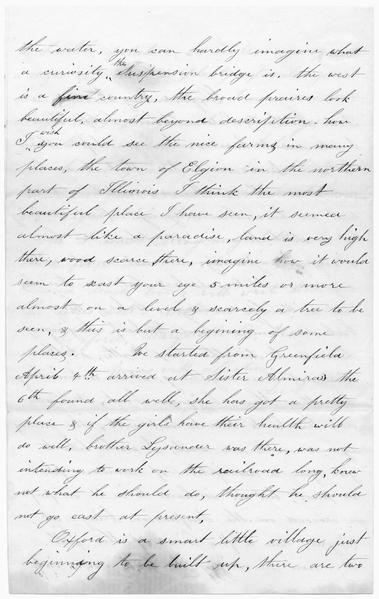 the water, you can hardly imagine what
a curiosity the Suspension bridge is, the west
is a fine country, the broad praires look
beautiful, almost beyond description. how
I wish you could see the nice farms in many
places, the town of Elgion in the northern
part of Illinois I think the most
beautiful place I have seen, it seemed
almost like a paradise, land is very high
there, wood scarce there, imagine how it would
seem to cast your eye 5 miles or more
almost on a level & scarcely a tree to be
seen, & this is but a begining of some
places. We started from Greenfield
April 4th arrived at Sister Almiras the
6th found all well, she has got a pretty
place & if the girls have their health will
do well, brother Lysander was there, was not
intending to work on the railroad long, knew
not what he should do, thought he should
not go east at present,
Oxford is a smart little village just
beginning to be built up, there are two